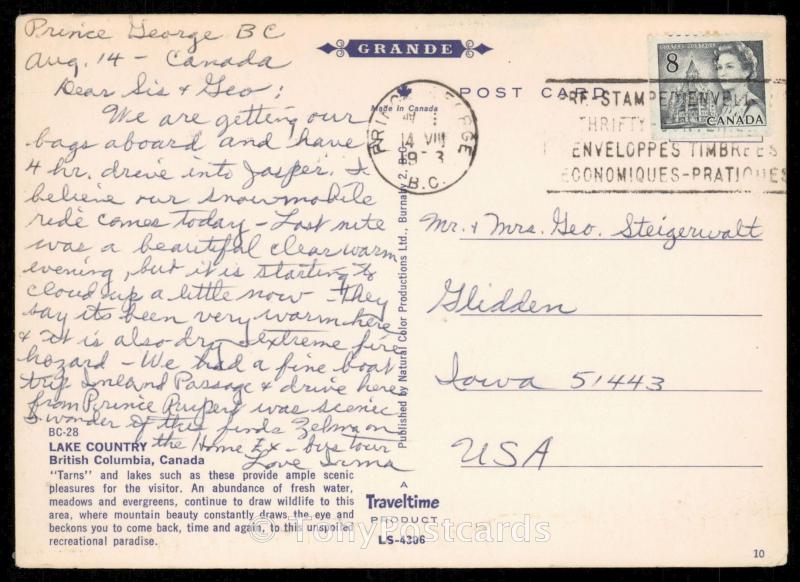 Prince George BC
Aug. 14 - Canada
Dear Sis & Geo;
We are getting our
bags aboard and have
4 hr. drive into Jasper. I
believe our snowmobile
ride comes today - Last nite
was a beautiful clear warm
evening, but it is starting to
cloud up a little now - they
say its been very warm here
& it is also dry - extreme fire
hazard - We had a fine boat
trip Inland Passage & drive here
from Prince Rupert was scenic
I wonder if this finds Zelma on
the Home Ex - bus tour
Love Irma
BC-28
LAKE COUNTRY
British Columbia, Canada
"Tarns" and lakes such as these provide ample scenic
pleasures for the visitor. An abundance of fresh water,
meadows and evergreens, continue to draw wildlife to this
area, where mountain beauty constantly draws the eye and
beckons you to come back, time and again, to this unspoiled
recreational paradise.
GRANDE
Made in Canada
POST CARD
Published by Natural Color Productions Ltd., Burnaby 2, B.C.
A
Traveltime
PRODUCT
LS-4306
PRINCE GEORGE
14 VIII
B.C.
PRE-STAMPED ENVELOPES
THRIFTY
ENVELOPPES TIMBREES
ECONOMIQUES-PRATIQUES
8
CANADA
Mr. & Mrs. Geo. Steigerwalt
Glidden
Iowa 51443
USA
10
© TonyPostcards